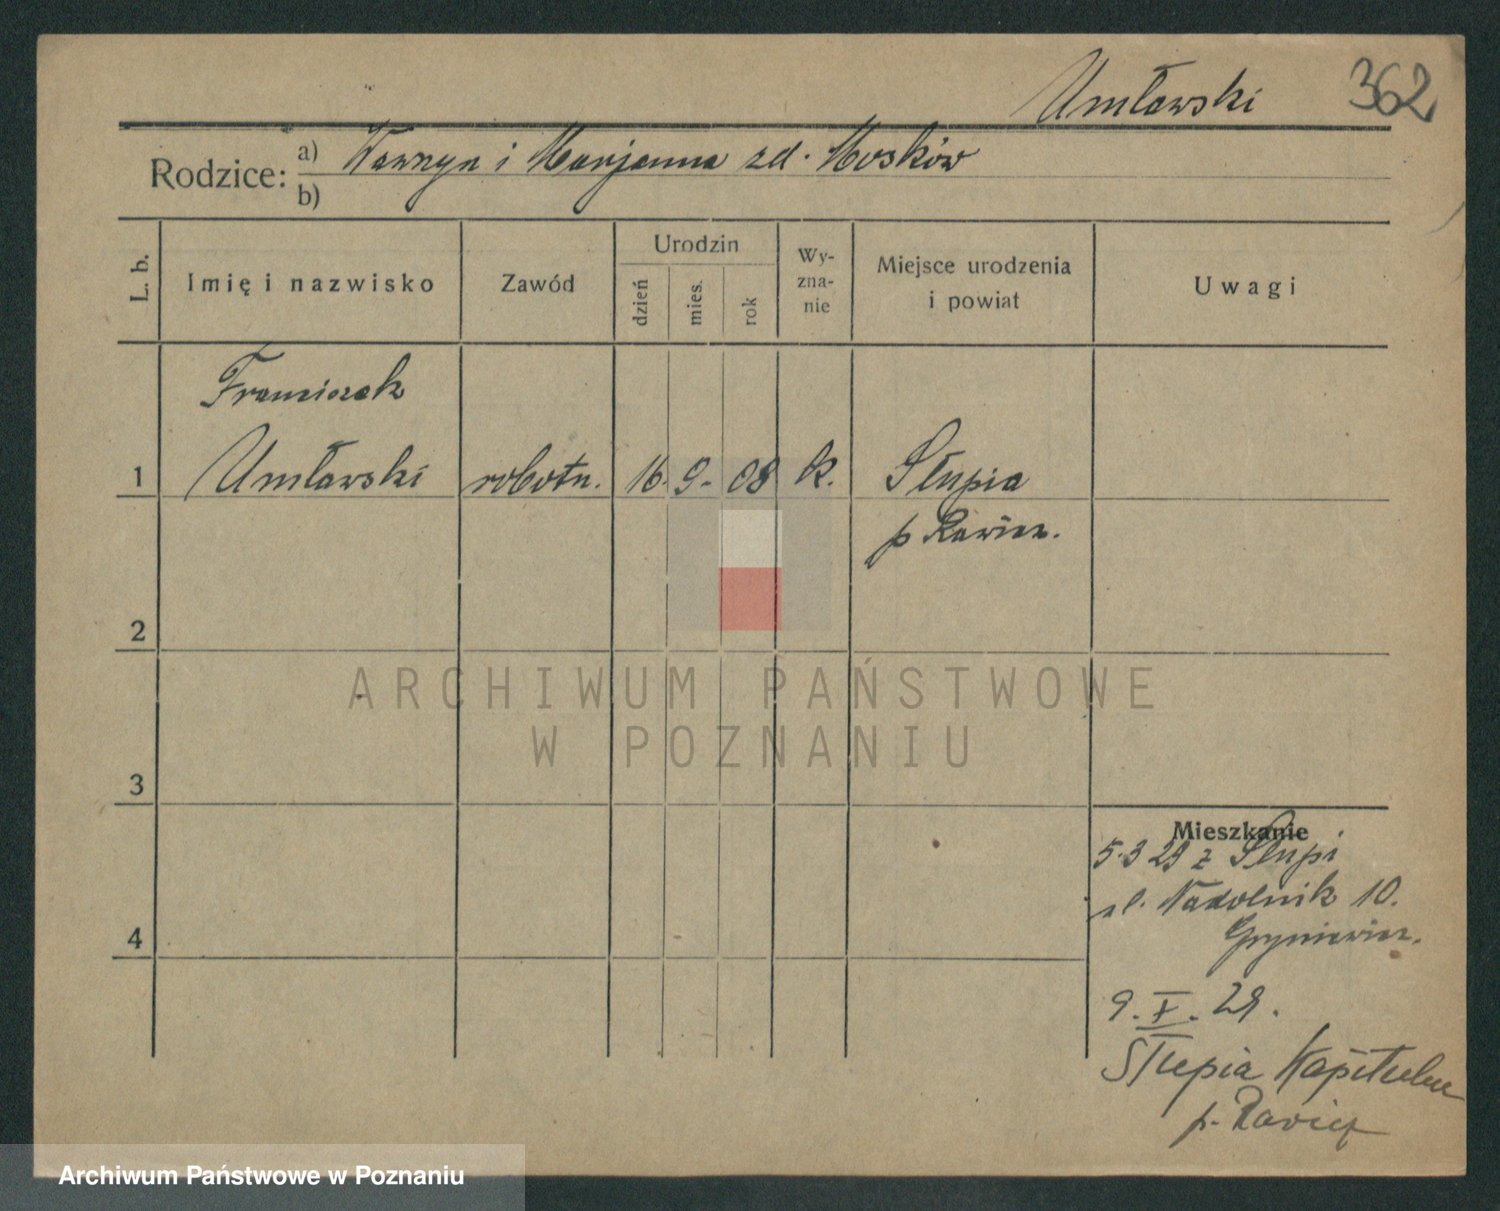 Umławski 362
Rodzice: a) Wawrzyn i Marjanna zd. Mosków
b)
L. b. Imię i nazwisko Zawód Urodzin dzień mies. rok Wy-zna-nie Miejsce urodzenia i powiat Uwagi
Franciszek
1 Umławski robotn. 16. 9. 08 k. Słupia
p Rawicz.
2
3
4
Mieszkanie
5.3 29 z Słupi
ul. Nadolnik 10.
Gryniewicz.
9. X. 29.
Słupia Kapitulna
p. Rawicz
ARCHIWUM PAŃSTWOWE
W POZNANIU
Archiwum Państwowe w Poznaniu